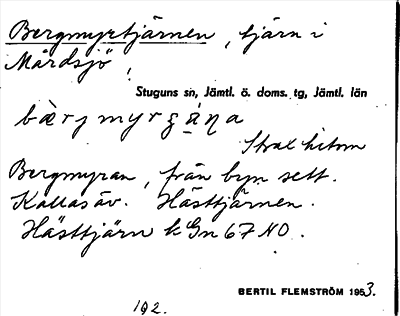 Bergmyrtjärnen, tjärn i
Mårdsjö,
Stuguns sn, Jämtl. ö. doms. tg, Jämtl. län
Bergmyran, från byn sett.
Kallas äv. Hästtjärnen.
Hästtjärn k Gn 67 NO.
BERTIL FLEMSTRÖM 1953.
192.